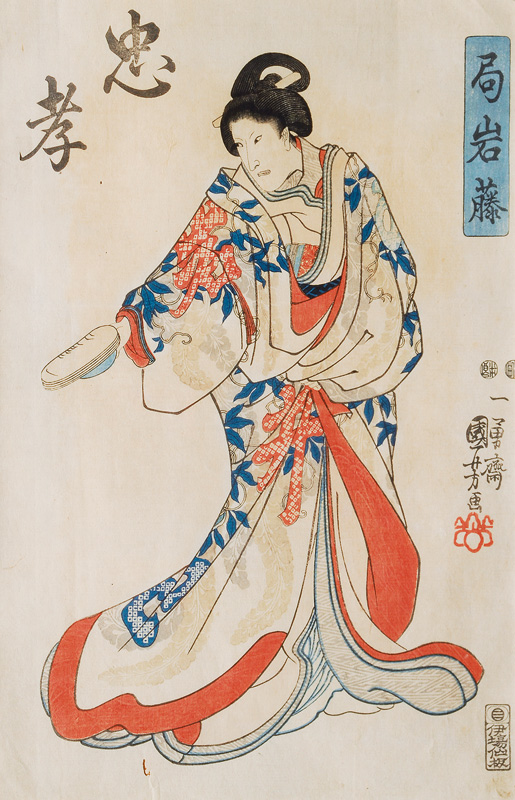 忠
孝
局岩藤
一勇齋
國芳画
伊場仙板